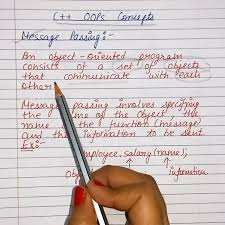 C++ OOPs Concepts
Message Passing:-
An object-oriented program
consists of a set of objects
that communicate with each
other
Message passing involves specifying
the name of the object the
name the function (message)
and the information to be sent
Ex:-
employee.salary(name);
Obj information